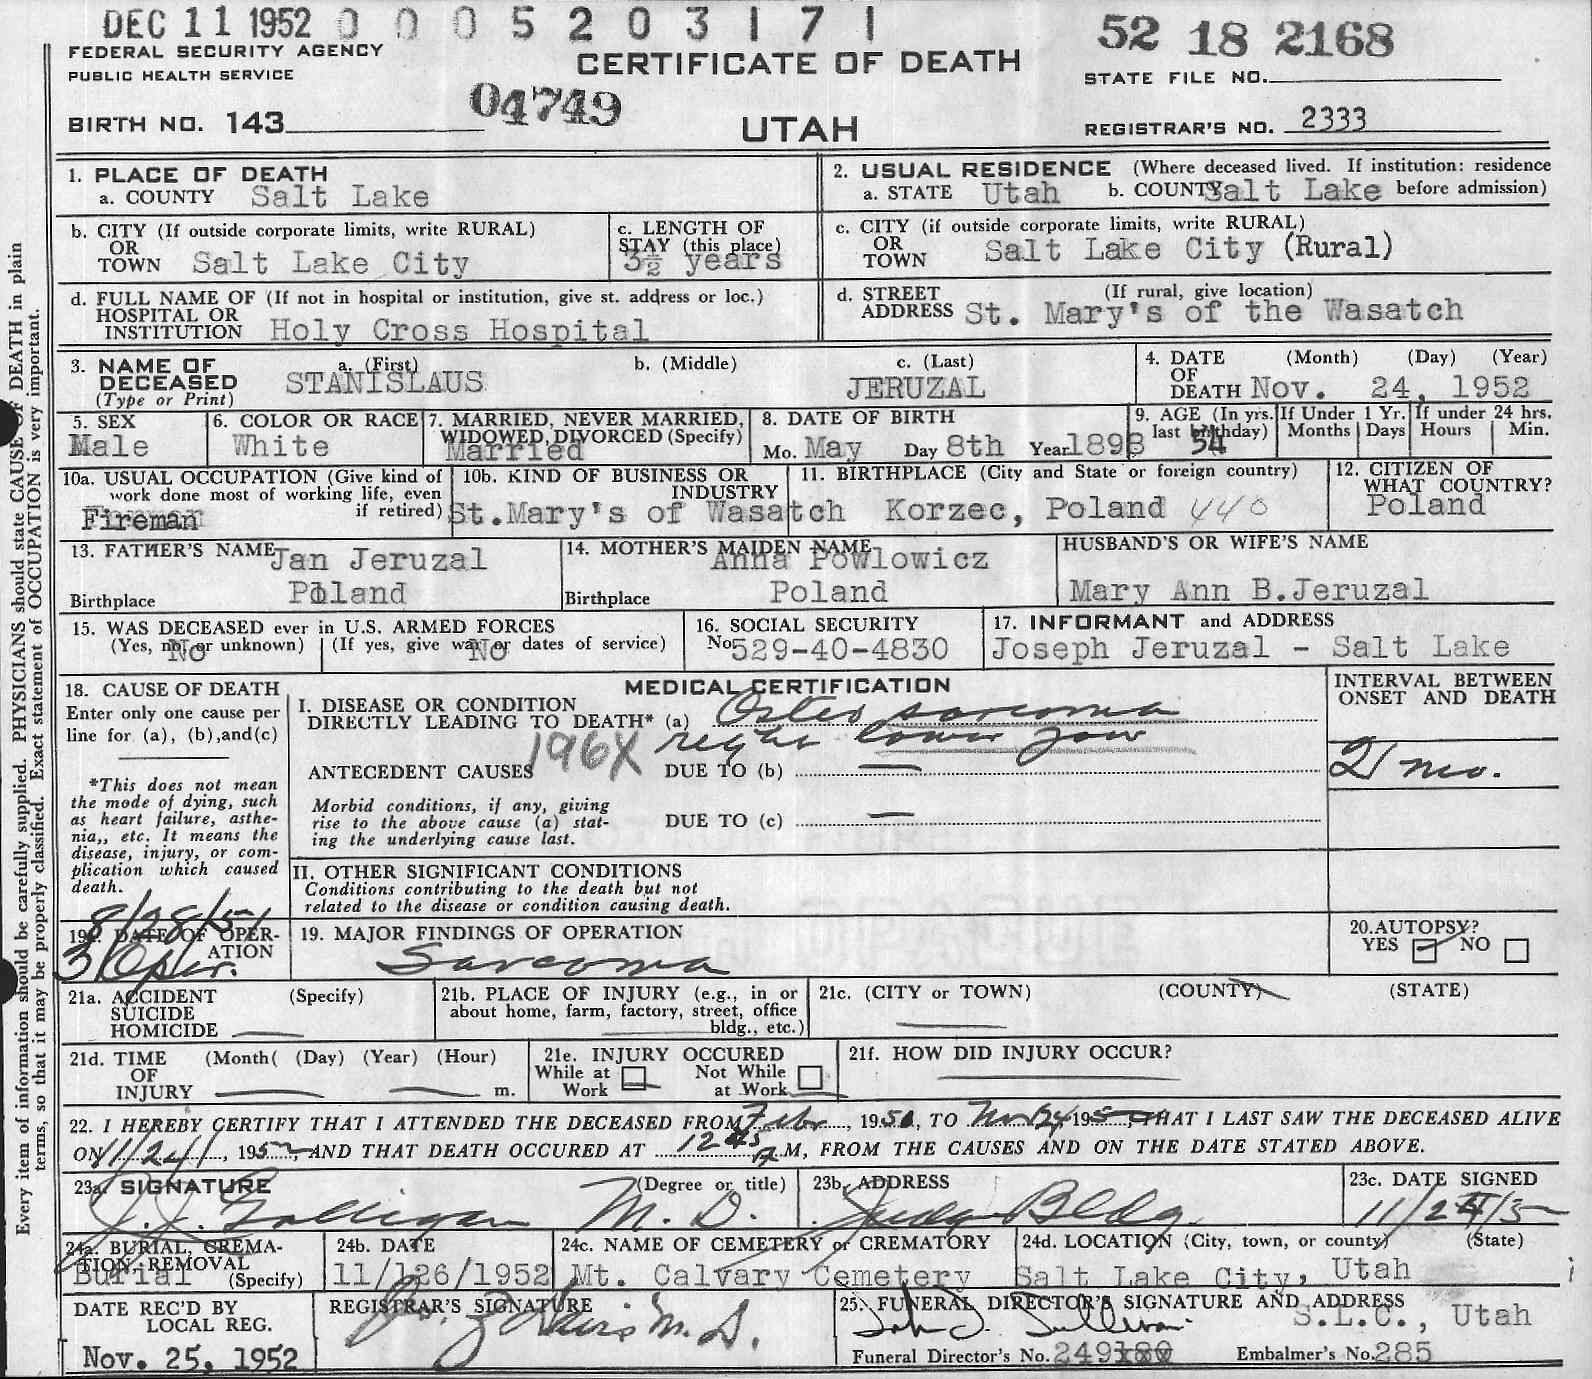 DEC 11 1952 0 0 0 5 2 0 3 1 7 1
52 18 2168
FEDERAL SECURITY AGENCY
PUBLIC HEALTH SERVICE
CERTIFICATE OF DEATH
STATE FILE NO.
BIRTH NO. 143
04749
UTAH
REGISTRAR'S NO. 2333
Every item of information should be carefully supplied. PHYSICIANS should state CAUSE OF DEATH in plain
terms, so that it may be properly classified. Exact statement of OCCUPATION is very important.
1. PLACE OF DEATH
a. COUNTY Salt Lake
2. USUAL RESIDENCE (Where deceased lived. If institution: residence
a. STATE Utah b. COUNTY Salt Lake before admission)
b. CITY (If outside corporate limits, write RURAL)
OR
TOWN Salt Lake City
c. LENGTH OF
STAY (this place)
3½ years
c. CITY (if outside corporate limits, write RURAL)
OR
TOWN Salt Lake City (Rural)
d. FULL NAME OF (If not in hospital or institution, give st. address or loc.)
HOSPITAL OR
INSTITUTION Holy Cross Hospital
d. STREET (If rural, give location)
ADDRESS St. Mary's of the Wasatch
3. NAME OF DECEASED
(Type or Print)
a. (First) b. (Middle) c. (Last)
STANISLAUS JERUZAL
4. DATE (Month) (Day) (Year)
OF
DEATH Nov. 24, 1952
5. SEX
Male
6. COLOR OR RACE
White
7. MARRIED, NEVER MARRIED,
WIDOWED, DIVORCED (Specify)
Married
8. DATE OF BIRTH
Mo. May Day 8th Year 1898
9. AGE (In yrs. last birthday)
54
If Under 1 Yr.
Months Days
If under 24 hrs.
Hours Min.
10a. USUAL OCCUPATION (Give kind of
work done most of working life, even
if retired)
Fireman
10b. KIND OF BUSINESS OR
INDUSTRY
St.Mary's of Wasatch
11. BIRTHPLACE (City and State or foreign country)
Korzec, Poland 440
12. CITIZEN OF
WHAT COUNTRY?
Poland
13. FATHER'S NAME Jan Jeruzal
Birthplace Poland
14. MOTHER'S MAIDEN NAME
Anna Powlowicz
Birthplace Poland
HUSBAND'S OR WIFE'S NAME
Mary Ann B.Jeruzal
15. WAS DECEASED ever in U.S. ARMED FORCES
(Yes, no, or unknown) (If yes, give war or dates of service)
No No
16. SOCIAL SECURITY
No 529-40-4830
17. INFORMANT and ADDRESS
Joseph Jeruzal - Salt Lake
18. CAUSE OF DEATH
Enter only one cause per
line for (a), (b), and (c)
*This does not mean
the mode of dying, such
as heart failure, asthe-
nia,, etc. It means the
disease, injury, or com-
plication which caused
death.
MEDICAL CERTIFICATION
I. DISEASE OR CONDITION
DIRECTLY LEADING TO DEATH* (a) Osteo sarcoma
196X right lower jaw
ANTECEDENT CAUSES DUE TO (b) —
Morbid conditions, if any, giving
rise to the above cause (a) stat-
ing the underlying cause last.
DUE TO (c) —
INTERVAL BETWEEN
ONSET AND DEATH
21 mo.
II. OTHER SIGNIFICANT CONDITIONS
Conditions contributing to the death but not
related to the disease or condition causing death.
8/28/51
19a. DATE OF OPER-
ATION
3 Oper.
19. MAJOR FINDINGS OF OPERATION
Sarcoma
20. AUTOPSY?
YES NO
21a. ACCIDENT (Specify)
SUICIDE
HOMICIDE
21b. PLACE OF INJURY (e.g., in or
about home, farm, factory, street, office
bldg., etc.)
21c. (CITY or TOWN) (COUNTY) (STATE)
21d. TIME (Month( (Day) (Year) (Hour)
OF
INJURY m.
21e. INJURY OCCURED
While at Not While
Work at Work
21f. HOW DID INJURY OCCUR?
22. I HEREBY CERTIFY THAT I ATTENDED THE DECEASED FROM Febr, 1951, TO Nov 24 1952, THAT I LAST SAW THE DECEASED ALIVE
ON 11/24, 1952, AND THAT DEATH OCCURED AT 12 45 A M, FROM THE CAUSES AND ON THE DATE STATED ABOVE.
23a. SIGNATURE (Degree or title)
J. J. Galligan M.D.
23b. ADDRESS
Judge Bldg.
23c. DATE SIGNED
11/24/5
24a. BURIAL, CREMA-
TION, REMOVAL
Burial (Specify)
24b. DATE
11/26/1952
24c. NAME OF CEMETERY or CREMATORY
Mt. Calvary Cemetery
24d. LOCATION (City, town, or county) (State)
Salt Lake City, Utah
DATE REC'D BY
LOCAL REG.
Nov. 25, 1952
REGISTRAR'S SIGNATURE
M.D.
25. FUNERAL DIRECTOR'S SIGNATURE AND ADDRESS
John J. Sullivan S.L.C., Utah
Funeral Director's No. 249 Embalmer's No. 285